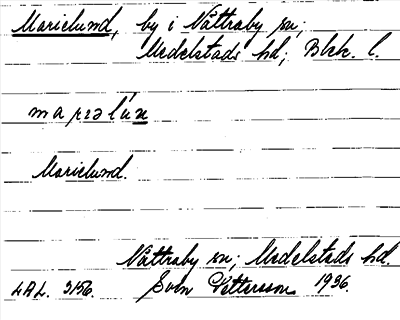 Marielund, by i Nättraby sn;
Medelstads hd; Blek. l.
Marielund.
Nättraby sn; Medelstads hd.
LAL. 3156. Sven Pettersson 1936.